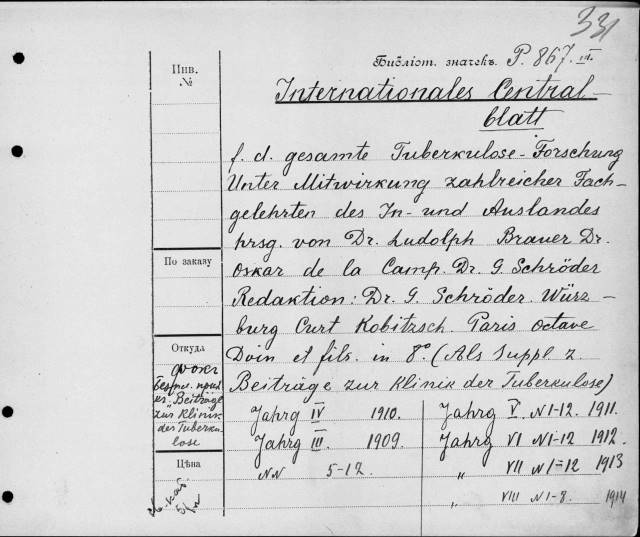 331
Библіот. значекъ P. 867. III.
Инв. №
Internationales Central-
blatt
f. d. gesamte Tuberkulose-Forschung
Unter Mitwirkung zahlreicher Fach-
gelehrten des In- und Auslandes
hrsg. von Dr. Ludolph Brauer Dr.
Oskar de la Camp. Dr. G. Schröder
Redaktion: Dr. G. Schröder. Würz-
burg Curt Kobitzsch. Paris octave
Doin et fils. in 8º. (Als Suppl. z.
Beiträge zur Klinik der Tuberkulose)
По заказу
Откуда
"Beiträge
zur Klinik
der Tuberku-
lose
Цѣна
Jahrg IV 1910.
Jahrg III. 1909.
NN 5-12.
Jahrg V. N 1-12. 1911.
Jahrg VI N 1-12 1912.
" VII N 1-12 1913
" VIII N 1-8. 1914